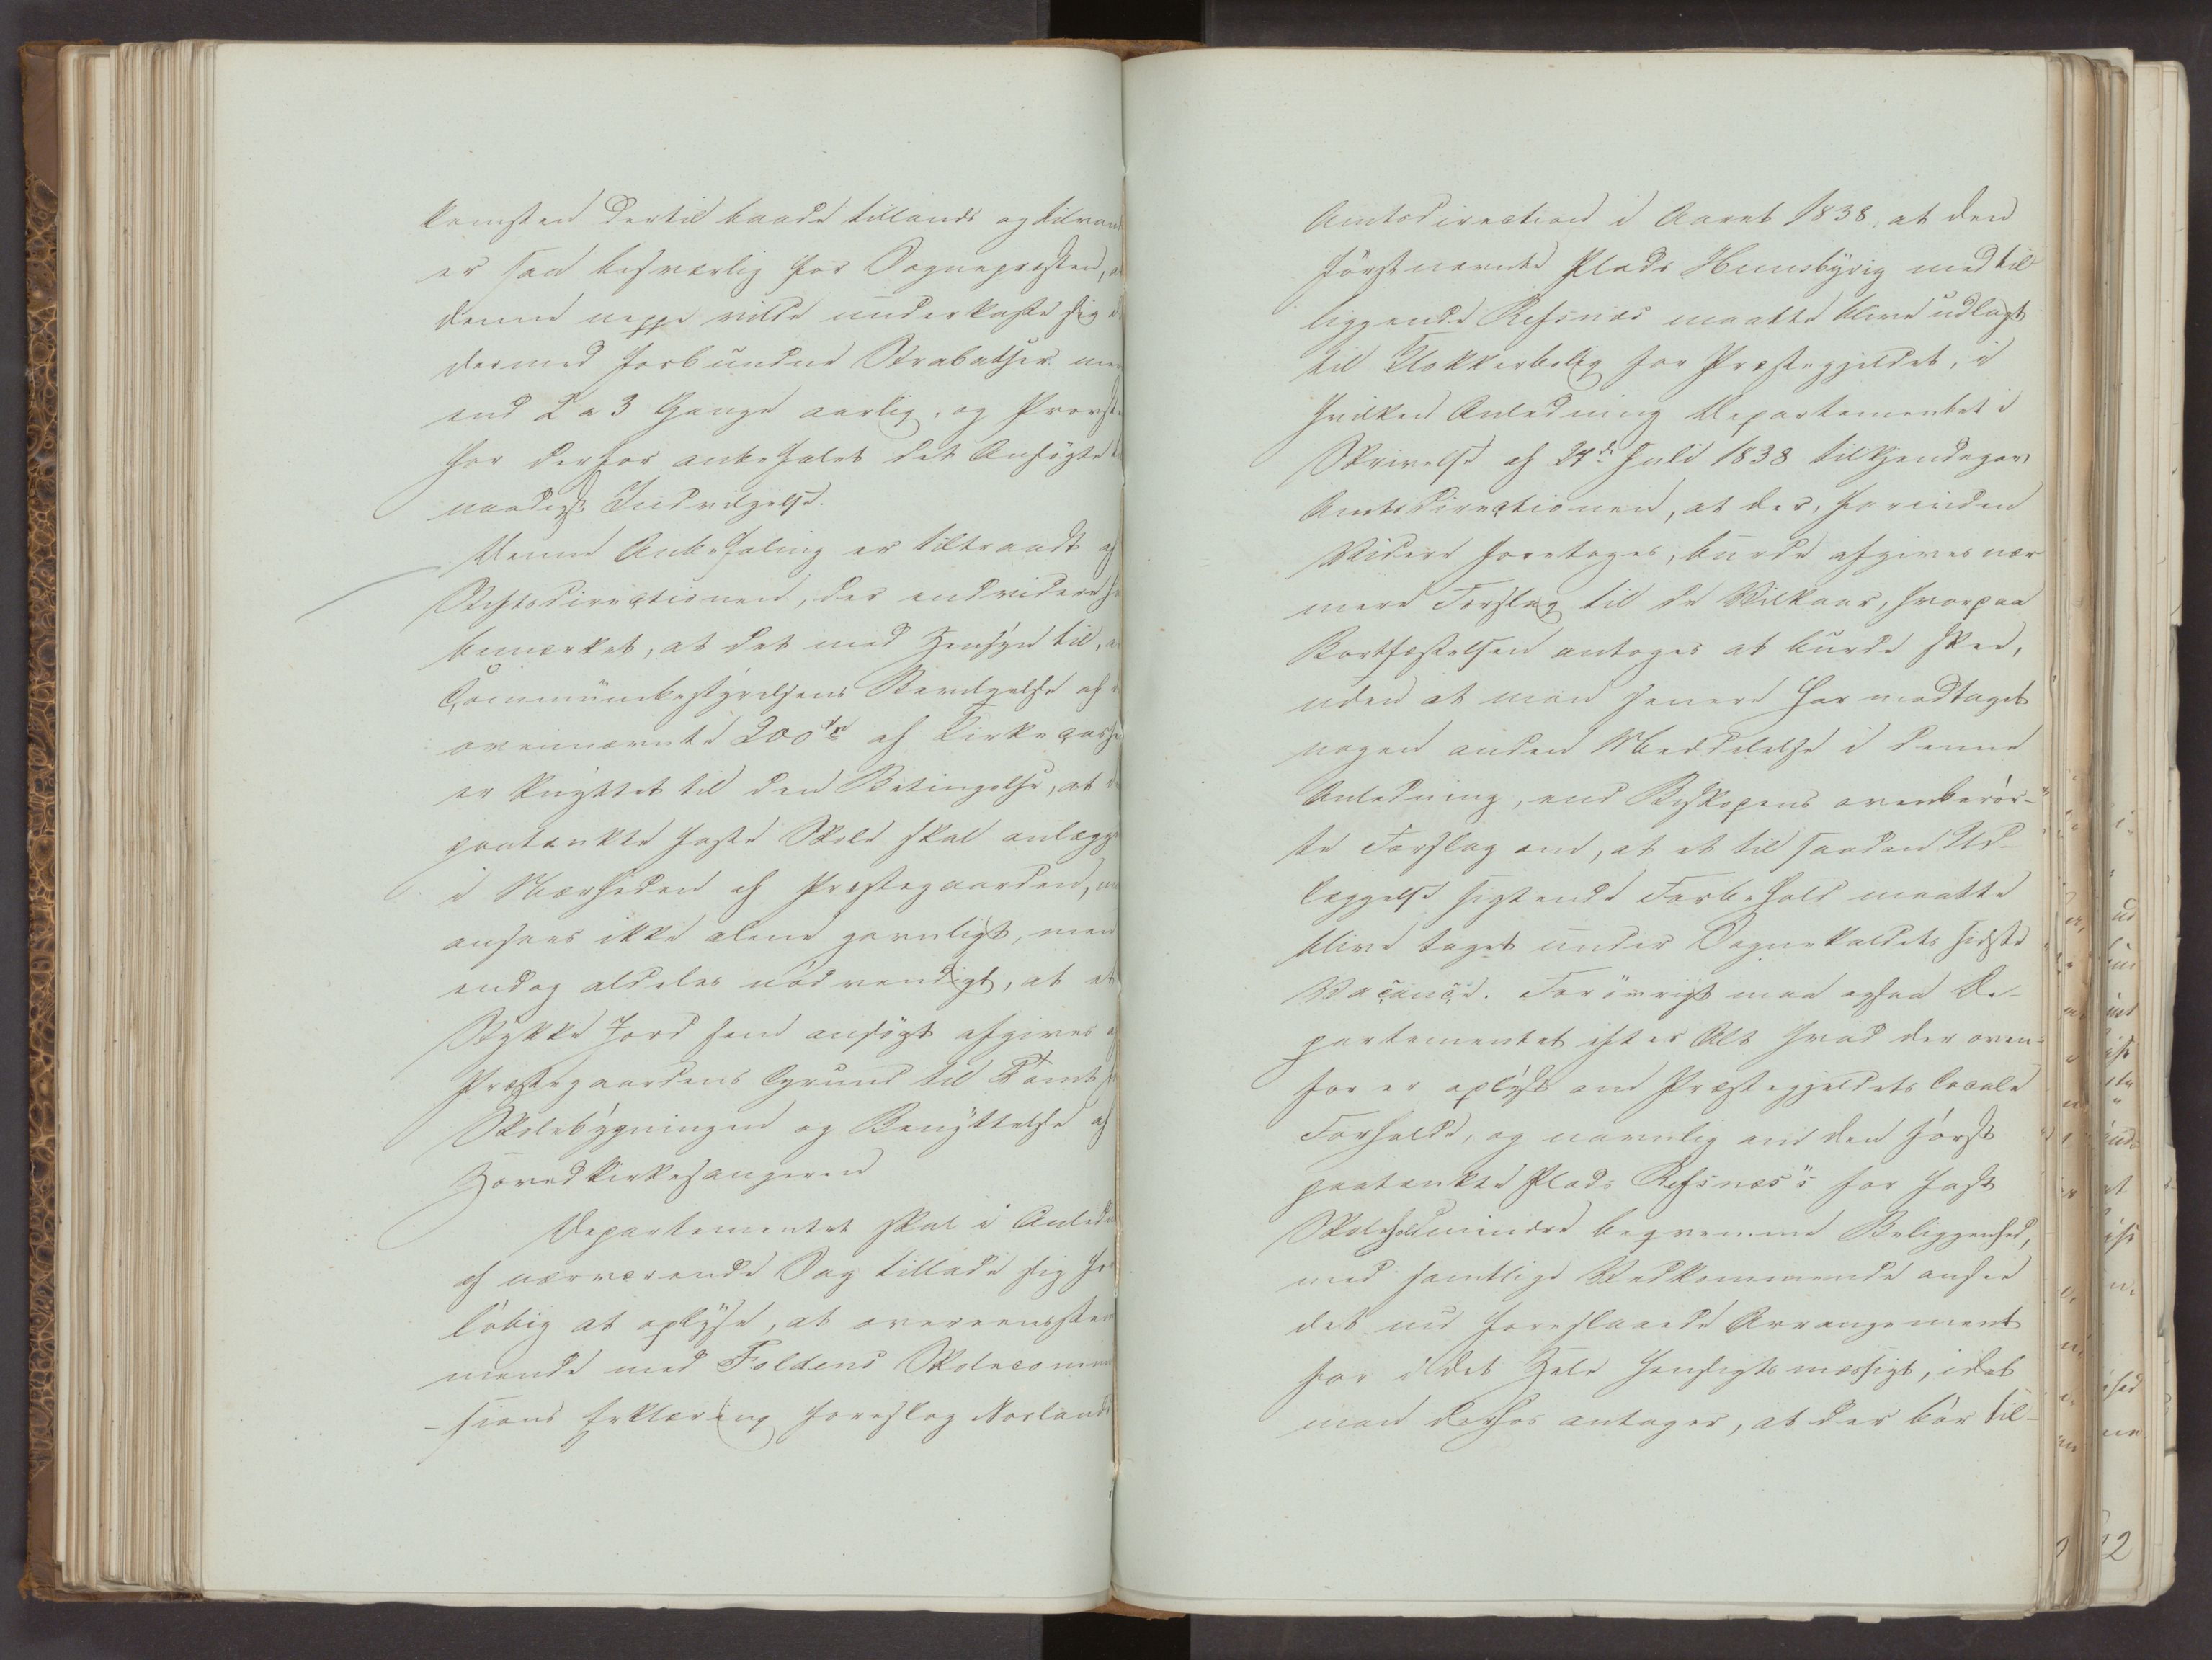 komsten dertil baade tillands og tilvan
er saa besværlig for Sognepræsten, a
denne neppe vilde underkaste sig d
dermed forbundne Strabatser me
end 2 a 3 Gange aarlig, og Provst
har derfor anbefalet det Ansøgte t
naadigst Indvilgelse.
Denne Anbefaling er tiltraadt af
Stiftsdirectionen, der endvidere h
bemærket, at det med Hensyn til, a
Communebestyrelsens Bevilgelse af d
ovennævnte 200 Spd af Kirkecasse
er knyttet til den Betingelse, at d
paatænkte faste Skole skal anlægg
i Nærheden af Præstegaarden, m
ansees ikke alene gavnligt, men
endog aldeles nødvendigt, at et
Stykke Jord som ansøgt afgives a
Præstegaardens Grund til Tomt f
Skolebygningen og Benyttelse af
Hovedkirkesangeren
Departementet skal i Anledn
af nærværende Sag tillade sig for
løbig at oplyse, at overeensstem
mende med Foldens Skolecommi
-sions Erklæring foreslog Norlands
Amtsdirection i Aaret 1838, at den
førstnævnte Plads Hunsbyrig med til
liggende Refsnæs maatte blive udlagt
til Klokkerbolig for Præstegjeldet, i
hvilken Anledning Departementet i
Skrivelse af 24de Juli 1838 tilkjendegav
Amtsdirectionen, at der, forinden
Videre foretoges, burde afgives nær
mere Forslag til de Vilkaar, hvorpaa
Bortfæstelsen antoges at burde skee,
uden at man senere har modtaget
nogen anden Meddelelse i denne
Anledning, end Biskopens ovenberør-
te Forslag om, at et til saadan Ud-
læggelse sigtende Forbehold maatte
blive taget under Sognekaldets sidste
Vacance. Forøvrigt maa ogsaa De-
partementet efter Alt hvad der oven-
for er oplyst om Præstegjeldets locale
Forholde, og navnlig om den først
paatænkte Plads Refsnæs's for fast
Skolehold mindre beqvemme Beliggenhed,
med samtlige Vedkommende ansee
det nu foreslaaede Arrangement
for i det Hele hensigtsmæssigt, idet
man derhos antager, at der bør til-